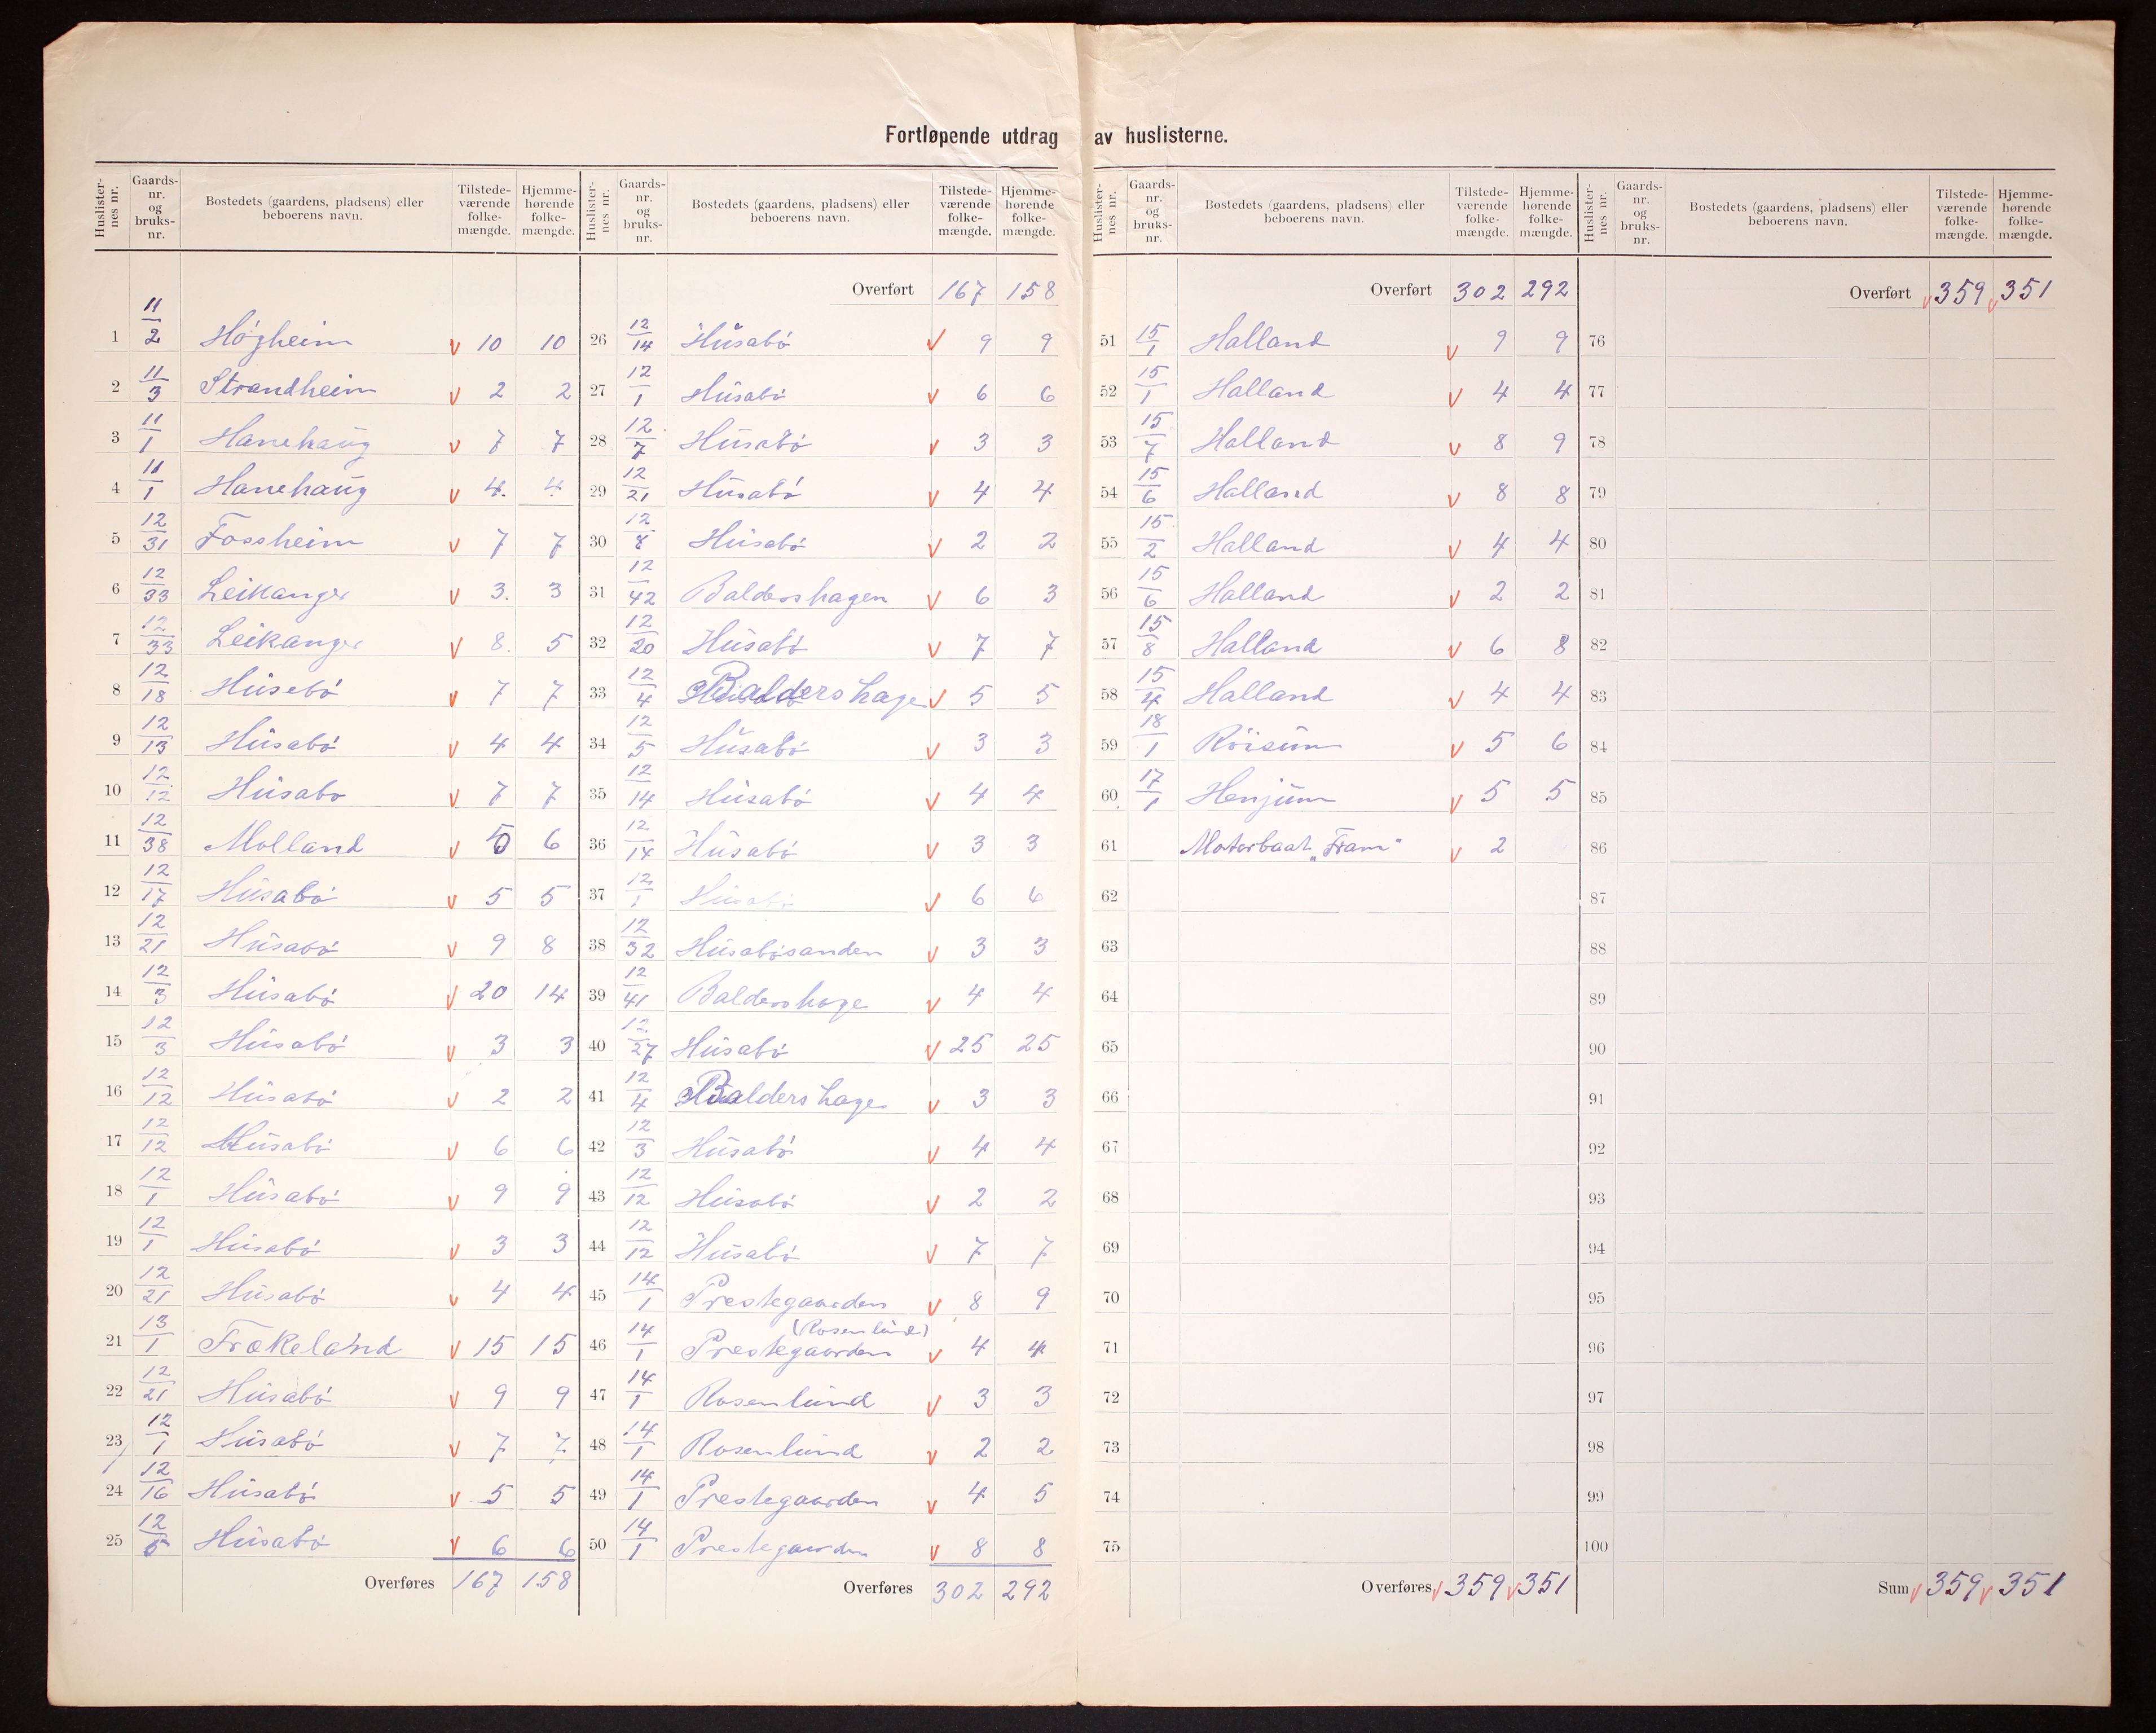 Fortløpende utdrag av huslisterne.
Huslister-nes nr. Gaards-nr. og bruks-nr. Bostedets (gaardens, pladsens) eller beboerens navn. Tilstede-værende folke-mængde. Hjemme-hørende folke-mængde.
1 11/2 Högheim v 10 10
2 11/3 Strandheim v 2 2
3 11/1 Hanehaug v 7 7
4 11/1 Hanehaug v 4. 4
5 12/31 Fossheim v 7 7
6 12/33 Leikanger v 3. 3
7 12/33 Leikanger v 8. 5
8 12/18 Husebö v 7 7
9 12/13 Husabö v 4 4
10 12/12 Husabo v 7 7
11 12/38 Molland v 5 6
12 12/17 Husabö v 5 5
13 12/21 Husabö v 9 8
14 12/3 Husabö v 20 14
15 12/3 Husabö v 3 3
16 12/12 Husabö v 2 2
17 12/12 Husabö v 6 6
18 12/1 Husabö v 9 9
19 12/1 Husabö v 3 3
20 12/21 Husabö v 4 4
21 13/1 Frøkeland v 15 15
22 12/21 Husabö v 9 9
23 12/1 Husabö v 7 7
24 12/16 Husabö v 5 5
25 12/5 Husabö v 6 6
Overføres 167 158
Huslister-nes nr. Gaards-nr. og bruks-nr. Bostedets (gaardens, pladsens) eller beboerens navn. Tilstede-værende folke-mængde. Hjemme-hørende folke-mængde.
Overført 167 158
26 12/14 Husabö v 9 9
27 12/1 Husabö v 6 6
28 12/7 Husabö v 3 3
29 12/21 Husabö v 4 4
30 12/8 Husabö v 2 2
31 12/42 Baldershagen v 6 3
32 12/20 Husabö v 7 7
33 12/4 Baldershage v 5 5
34 12/5 Husabö v 3 3
35 12/14 Husabö v 4 4
36 12/14 Husabö v 3 3
37 12/1 Husabö v 6 6
38 12/32 Husabösanden v 3 3
39 12/41 Baldershage v 4 4
40 12/27 Husabö v 25 25
41 12/4 Baldershage v 3 3
42 12/3 Husabö v 4 4
43 12/12 Husabö v 2 2
44 12/12 Husabö v 7 7
45 14/1 Prestegaarden v 8 9
46 14/1 Prestegaarden (Rosenlund) v 4 4
47 14/1 Rosenlund v 3 3
48 14/1 Rosenlund v 2 2
49 14/1 Prestegaarden v 4 5
50 14/1 Prestegaarden v 8 8
Overføres 302 292
Huslister-nes nr. Gaards-nr. og bruks-nr. Bostedets (gaardens, pladsens) eller beboerens navn. Tilstede-værende folke-mængde. Hjemme-hørende folke-mængde.
Overført 302 292
51 15/1 Halland v 9 9
52 15/1 Halland v 4 4
53 15/7 Halland v 8 9
54 15/6 Halland v 8 8
55 15/2 Halland v 4 4
56 15/6 Halland v 2 2
57 15/8 Halland v 6 8
58 15/4 Halland v 4 4
59 18/1 Röisum v 5 6
60 17/1 Henjum v 5 5
61 Motorbaat „Fram" v 2
62
63
64
65
66
67
68
69
70
71
72
73
74
75
Overføres v 359 v 351
Huslister-nes nr. Gaards-nr. og bruks-nr. Bostedets (gaardens, pladsens) eller beboerens navn. Tilstede-værende folke-mængde. Hjemme-hørende folke-mængde.
Overført v 359 v 351
76
77
78
79
80
81
82
83
84
85
86
87
88
89
90
91
92
93
94
95
96
97
98
99
100
Sum v 359 v 351